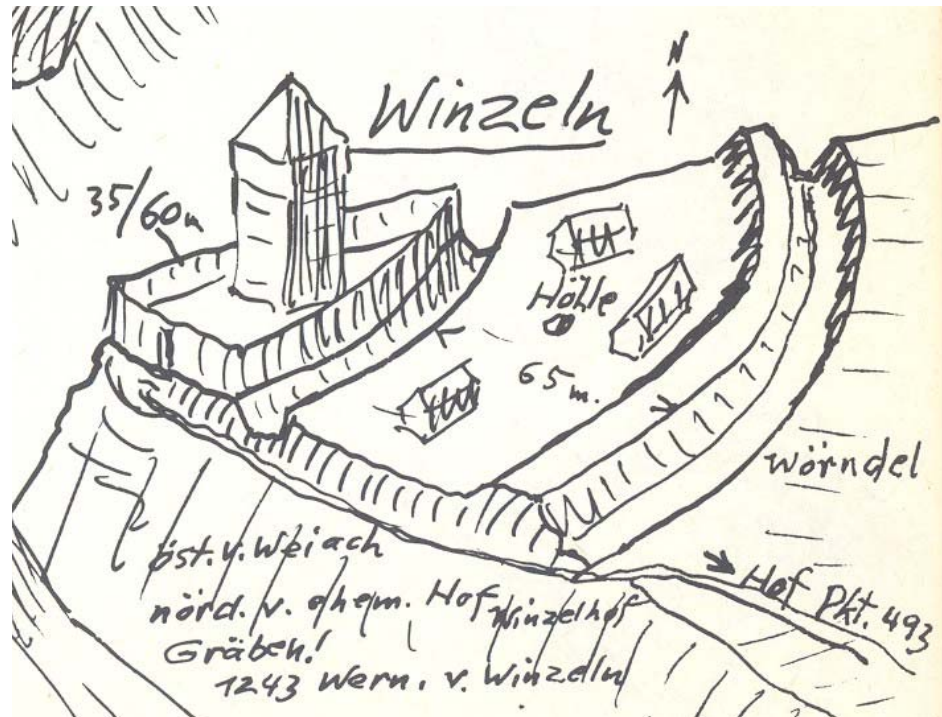 Winzeln
N
35/60m
Höhle
65 m.
Wörndel
öst. v. Weiach
nörd. v. ehem. Hof Winzelhof
Gräben!
1243 Wern. v. Winzeln
Hof Pkt. 493